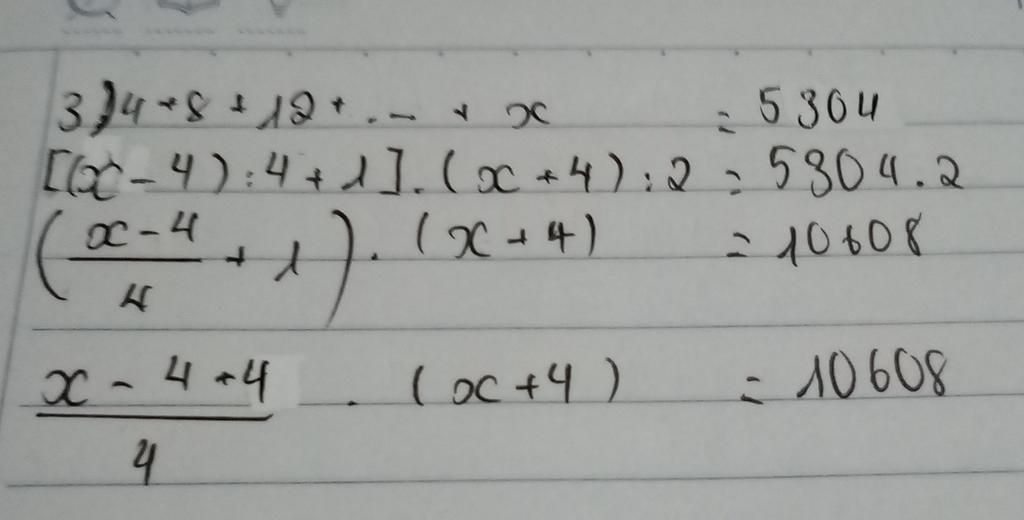 3) 4 + 8 + 12 + ... + x = 5304
[(x - 4) : 4 + 1] . (x + 4) : 2 = 5304 . 2
(\frac{x - 4}{4} + 1) . (x + 4) = 10608
\frac{x - 4 + 4}{4} . (x + 4) = 10608